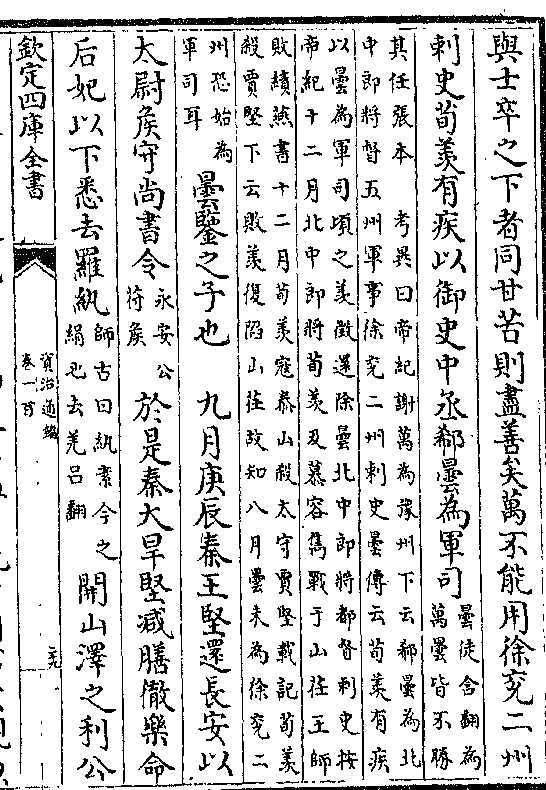 與士卒之下者同甘苦則盡善矣萬不能用徐兗二州
刺史荀羨有疾以御史中丞郗曇為軍司曇徒含翻為萬曇皆不勝
其任張本　考異曰帝紀謝萬為豫州下云郗曇為北
中郎將督五州軍事徐兗二州刺史曇傳云荀羨有疾
以曇為軍司頃之羨徵還除曇北中郎將都督刺史按
帝紀十二月北中郎將荀羨及慕容儁戰于山茌王師
敗績燕書十二月荀羨寇泰山殺太守賈堅載記荀羨
殺賈堅下云敗羨復陷山茌故知八月曇未為徐兗二
州恐始為軍司耳曇鑒之子也　九月庚辰秦王堅還長安以
太尉侯守尚書令永安公苻侯於是秦大旱堅减膳徹樂命
后妃以下悉去羅紈師古曰紈素今之絹也去羌吕翻開山澤之利公
欽定四庫全書
資治通鑑
卷一百